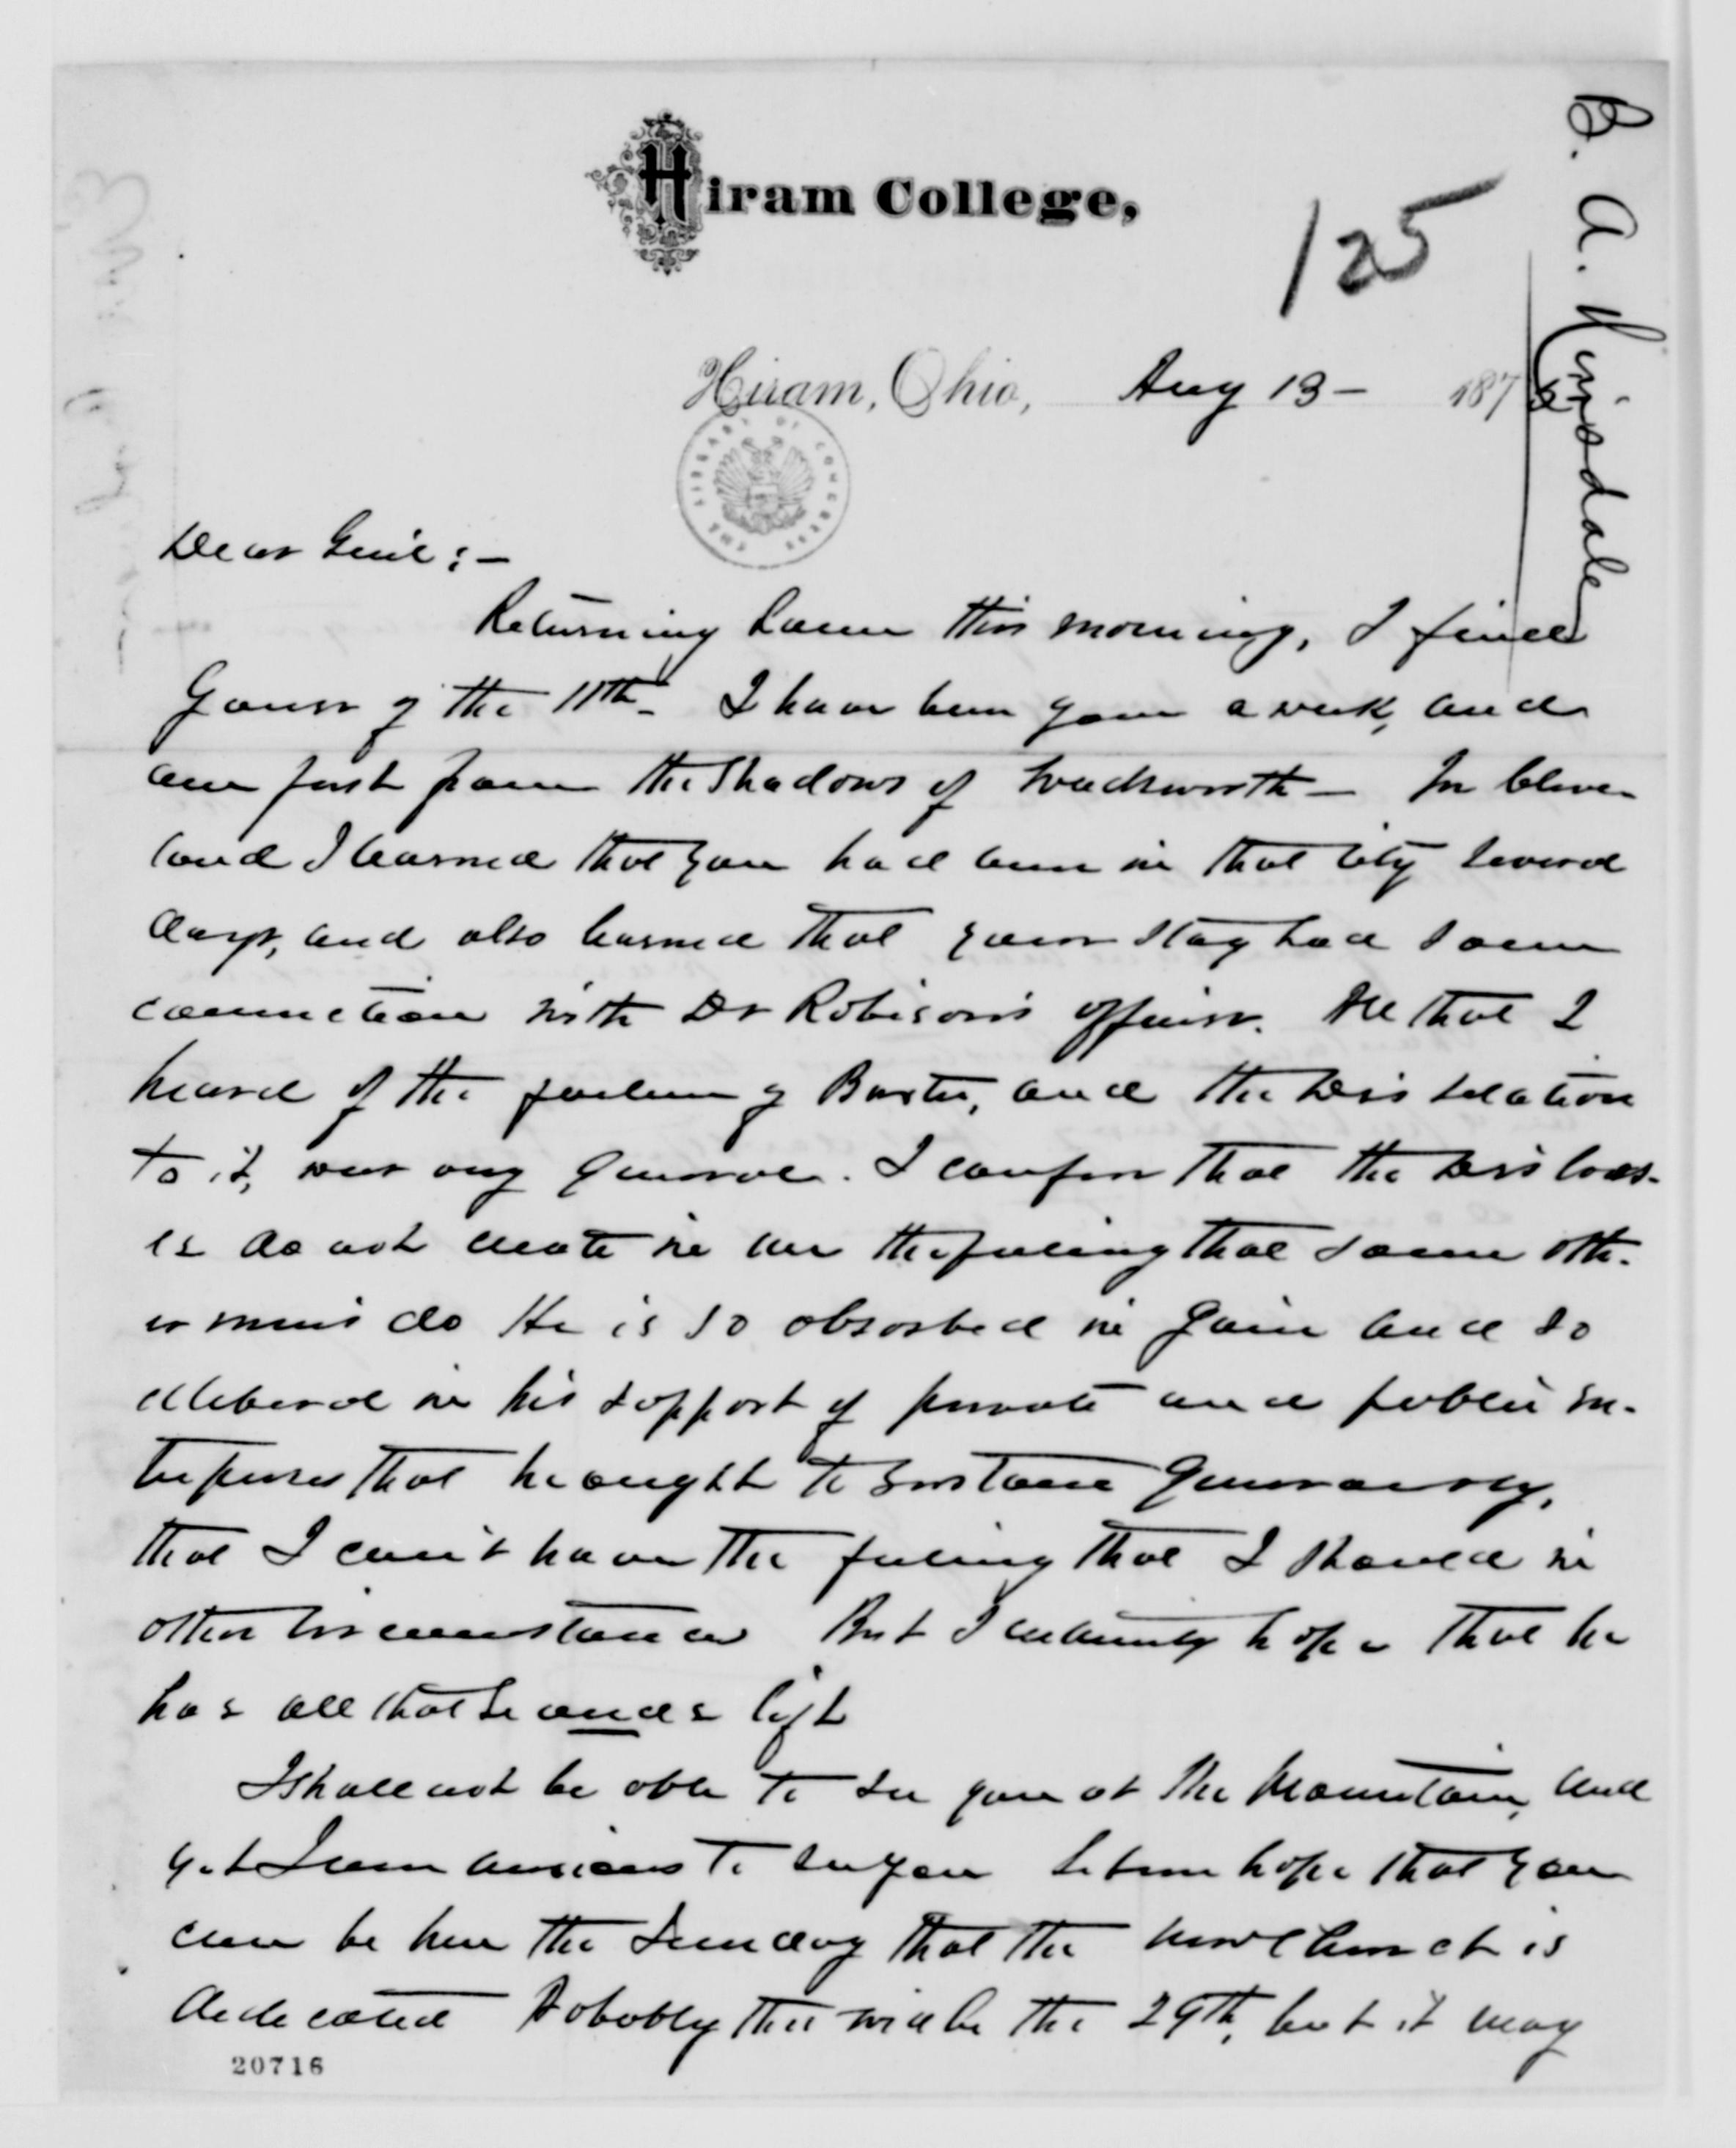 Hiram College,
125
B. A. Hinsdale
Hiram, Ohio, Aug 13 - 187
THE LIBRARY OF CONGRESS
Dear Gen'l : -
Returning home this morning, I find
yours of the 11th - I have been gone a week, and
am just from the Shadows of Wadsworth - In Cleve-
land I learned that you had been in that city several
days, and also learned that your stay had some
connection with Dr Robison's affairs. All that I
heard of the failure of and the Drs relation
to it, was very general. I confess that the Drs loss-
es do not create in me the feeling that some oth-
er men's do He is so absorbed in gain and so
illiberal in his support of private and public en-
terprises that he ought to sustain generously,
that I can't have the feeling that I should in
other circumstances But I certainly hope that he
has all that he needs left
I shall not be able to see you at the Mountain, and
yet I am anxious to see you Let me hope that you
can be here the Sunday that the new church is
dedicated Probably this will be the 29th, but it may
20716